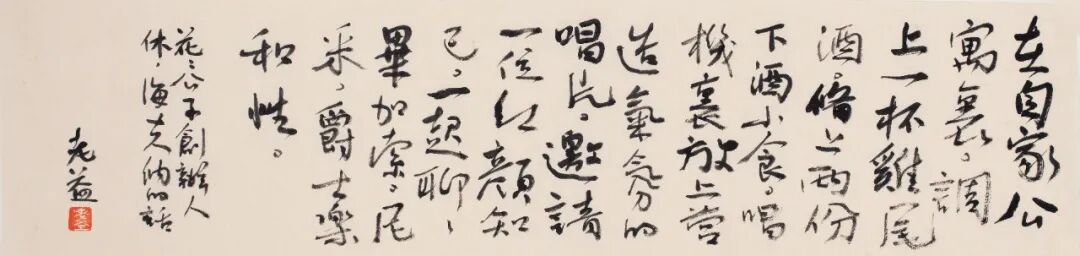 在自家公
寓裏。調
上一杯雞尾
酒。備上兩份
下酒小食。唱
機裏放上營
造氣氛的
唱片。邀請
一位紅顏知
己。一起聊〻
畢加索。尼
采。爵士樂
和性。
花〻公子創辦人
休·海夫納的話
老益